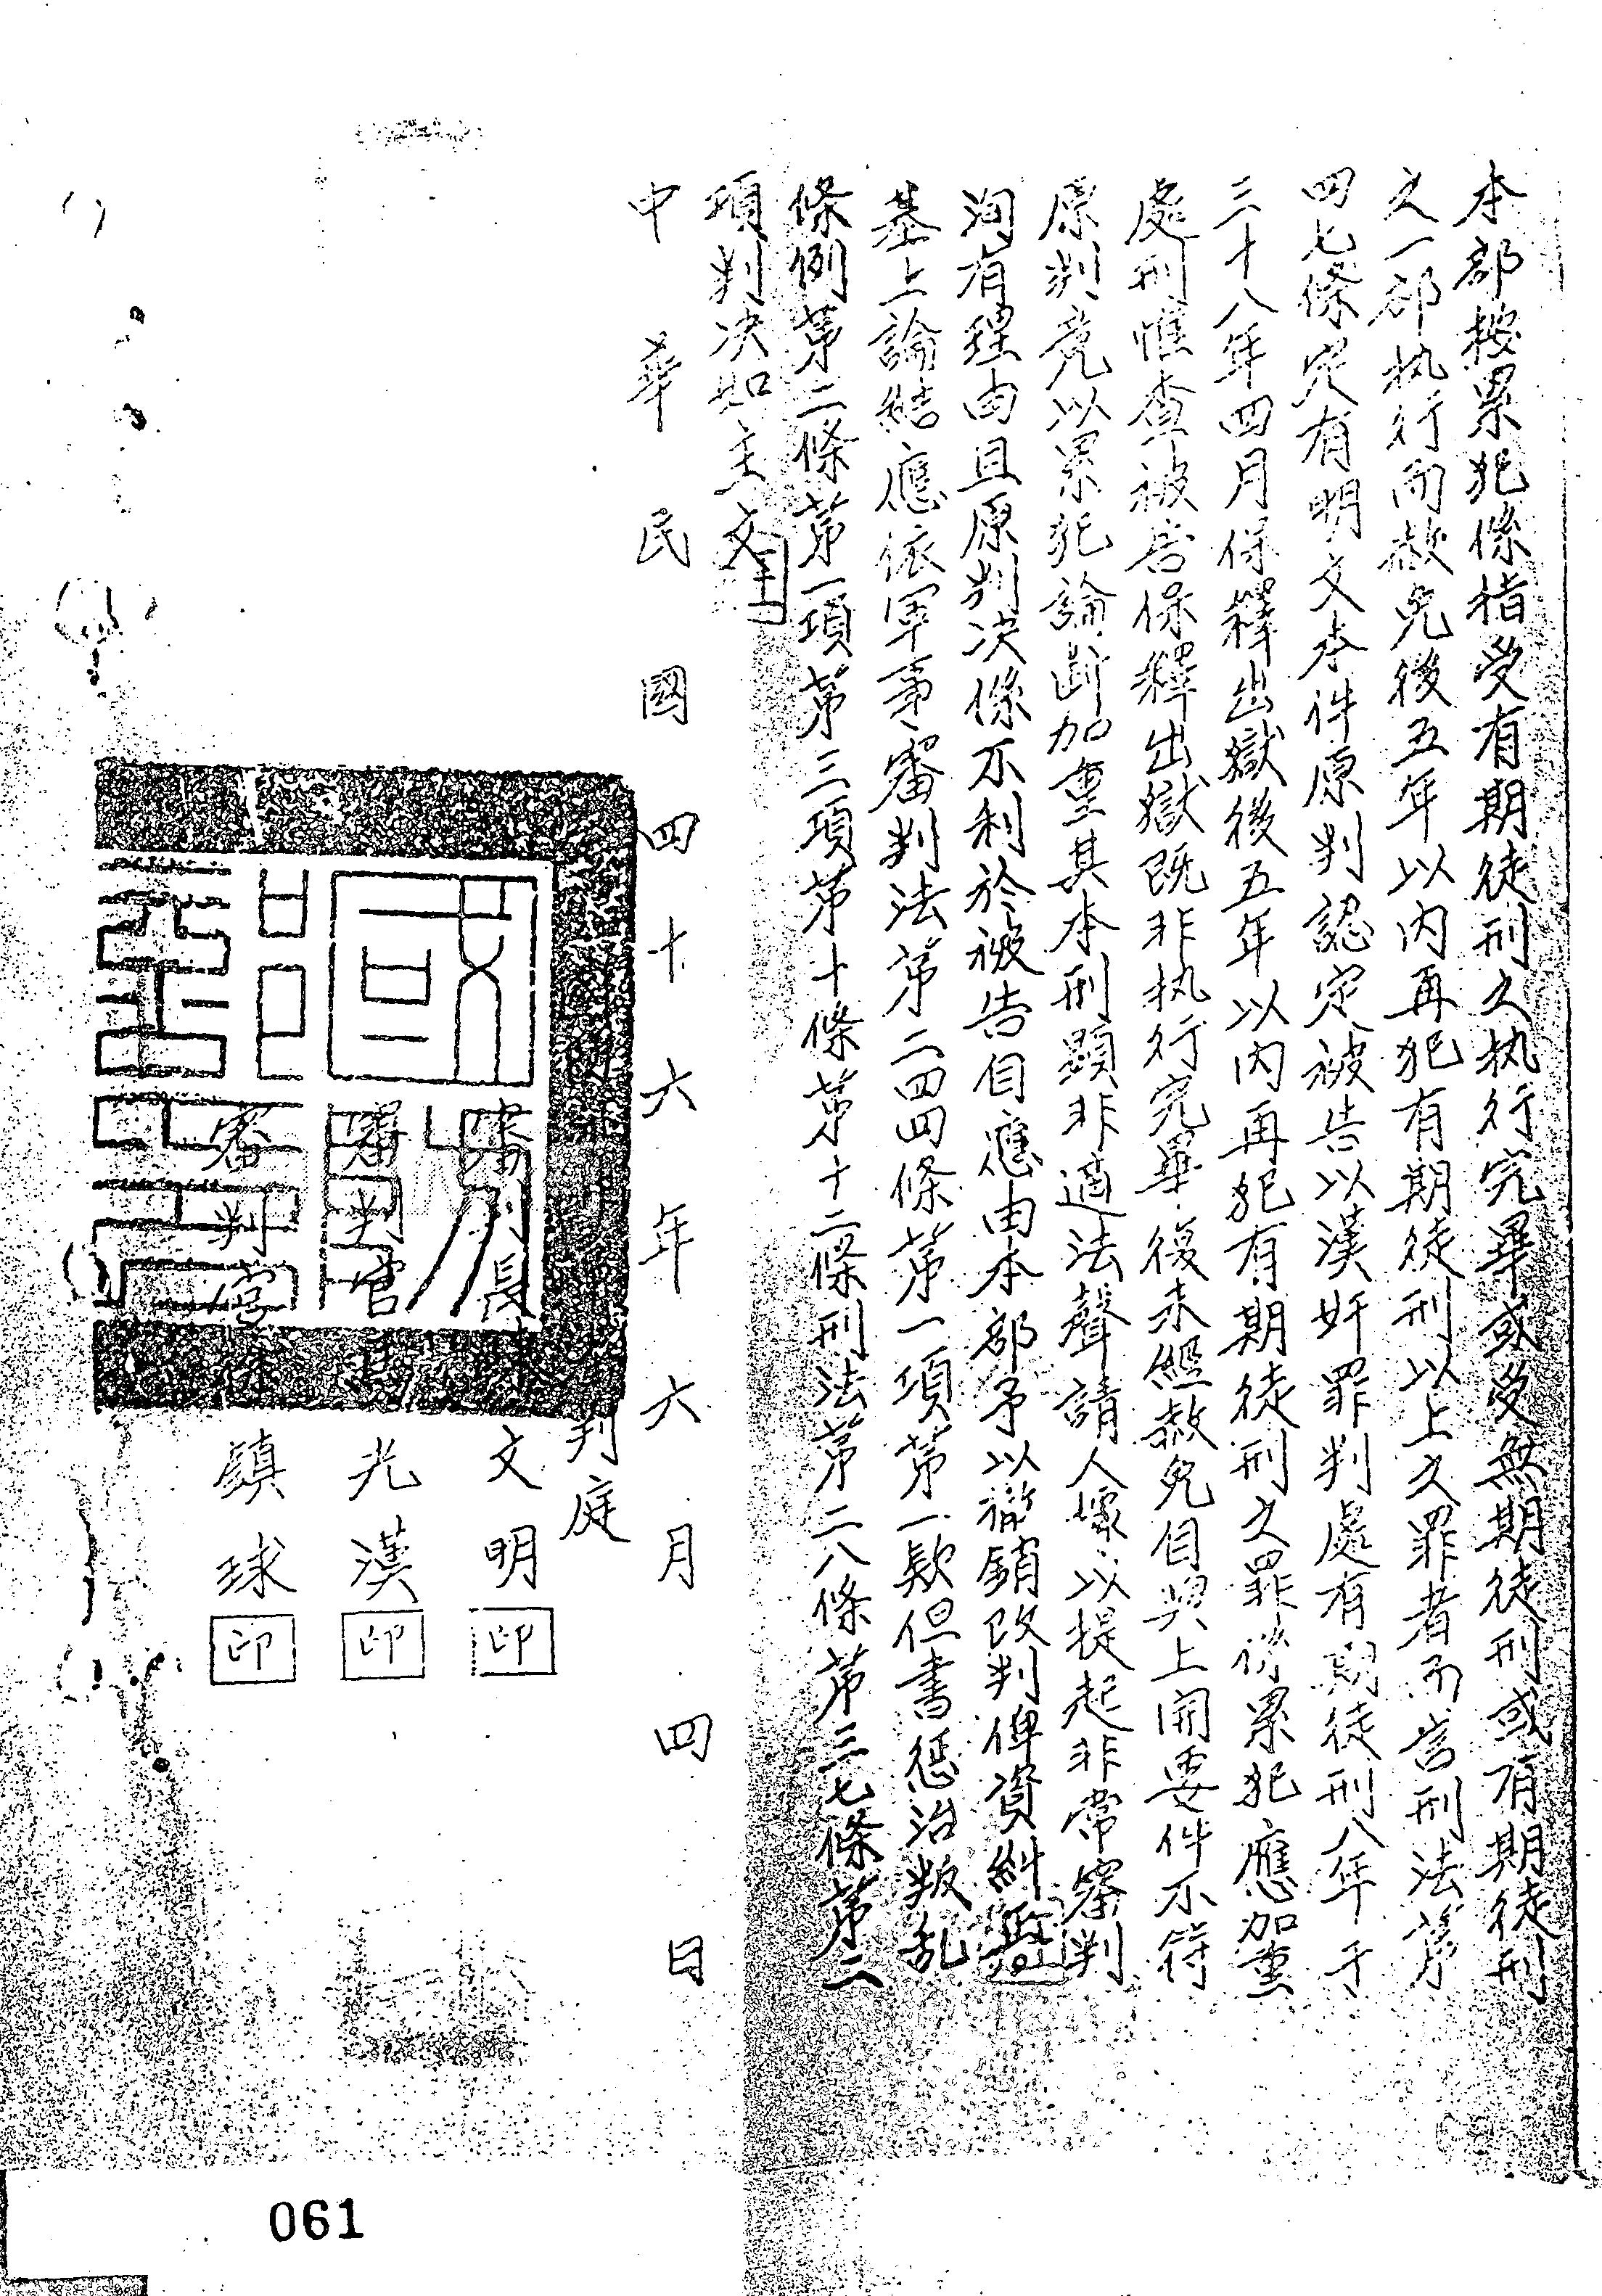 本部按累犯係指受有期徒刑之执行完畢或受無期徒刑或有期徒刑
之一部执行而赦免後五年以内再犯有期徒刑以上之罪者而言刑法第
四七條定有明文本件原判認定被告以漢奸罪判處有期徒刑八年于
三十八年四月保釋出獄後五年以内再犯有期徒刑之罪依累犯應加重
處刑惟查被告保釋出獄既非执行完畢後未經赦免自與上開要件不符
原判竟以累犯論断加重其本刑顕非適法聲請人據以提起非常審判
洵有理由且原判决係不利於被告自應由本部予以撤銷改判俾資糾
基上論結應依軍事審判法第二四四條第一項第一款但書惩治叛乱
條例第二條第一項第三項第十條第十二條刑法第二八條第三七條第二
項判决如主文
中華民國四十六年六月四日
判庭
審判長 文明 印
審判官 光漢 印
審判官 鎮球 印
061